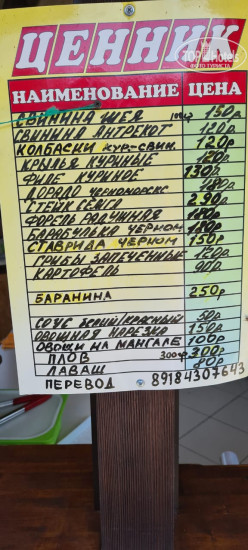 ЦЕННИК
TopHotels
ФОТО ТУРИСТА
НАИМЕНОВАНИЕ ЦЕНА
СВИНИНА ШЕЯ 100гр 150р
СВИНИНА АНТРЕКОТ
КОЛБАСКИ КУР-СВИН. 120р
КРЫЛЬЯ КУРИНЫЕ
ФИЛЕ КУРИНОЕ 130р
ДОРАДО ЧЕРНОМОРСК 180р
СТЕЙК СЕМГА 290р
ФОРЕЛЬ РАДУЖНАЯ 180р
БАРАБУЛЬКА ЧЕРНОМ 180р
СТАВРИДА ЧЕРНОМ 150р
ГРИБЫ ЗАПЕЧЕННЫЕ 120р
КАРТОФЕЛЬ 90р
БАРАНИНА 250р
СОУС БЕЛЫЙ/КРАСНЫЙ 50р
ОВОЩНАЯ НАРЕЗКА 150р
ОВОЩИ НА МАНГАЛЕ 100р
ПЛОВ 300гр 300р
ЛАВАШ 40р
ПЕРЕВОД 89184307643